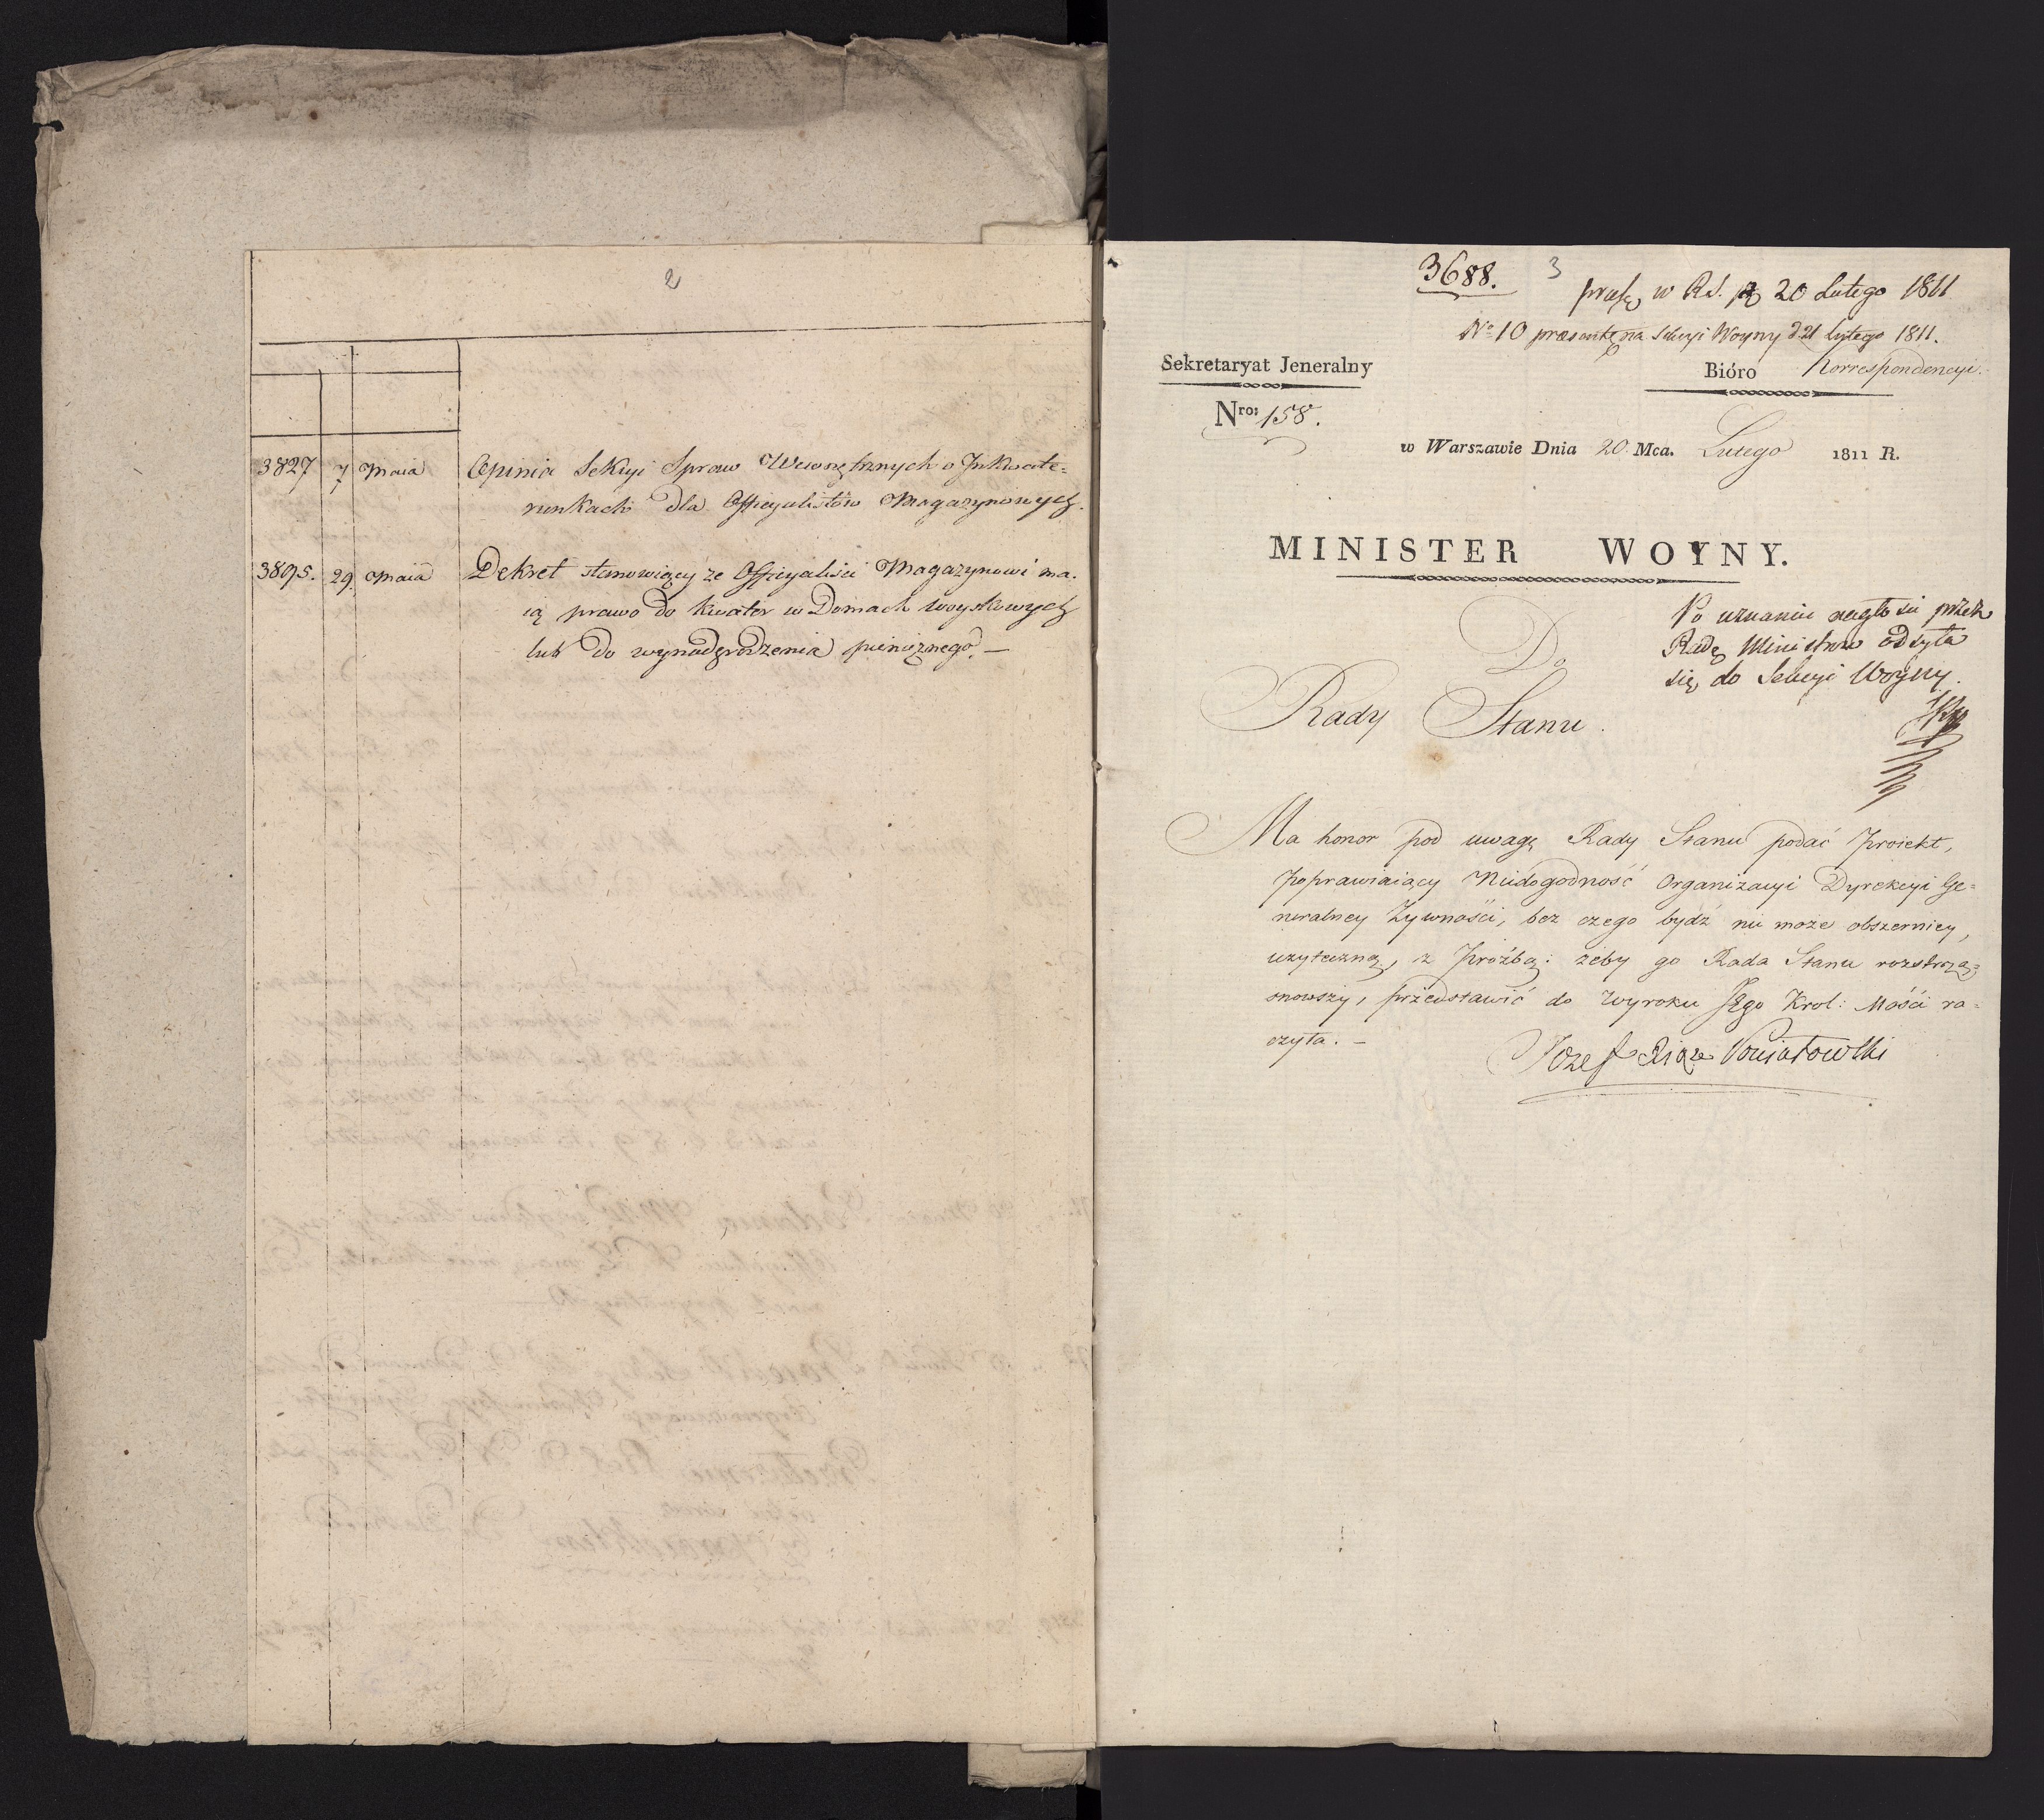 2
3827 7 Maia Opinia Sekcyi Spraw Wewnętrznych o Inkwate=
runkach dla Officyalistów Magazynowych.
3895. 29. Maia Dekret stanowiący że Officyaliści Magazynowi ma.
ią prawo do kwater w Domach woyskowych
lub do wynadgrodzenia pieniężnego. —
3688. 3
w R.S. 20 Lutego 1811
No 10 na Sekcyi Woyny d. 21 Lutego 1811.
Sekretaryat Jeneralny
Bióro Korrespondencyi.
Nro: 158.
w Warszawie Dnia 20. Mca. Lutego 1811 R.
MINISTER WOYNY.
Po uznaniu nagłości przez
Radę Ministrów odsyła
się do Sekcyi Woyny.
Do
Rady Stanu.
Ma honor pod uwagę Rady Stanu podać Proiekt,
poprawiaiący Niedogodność Organizacyi Dyrekcyi Ge=
neralney Żywności, bez czego bydź nie może obszerniey,
użyteczną, z Proźbą: żeby go Rada Stanu roztrzą=
snowszy, przedstawić do Wyroku Jego Krol: Mości ra=
czyła. —
Jozef Xiąże Poniatowski